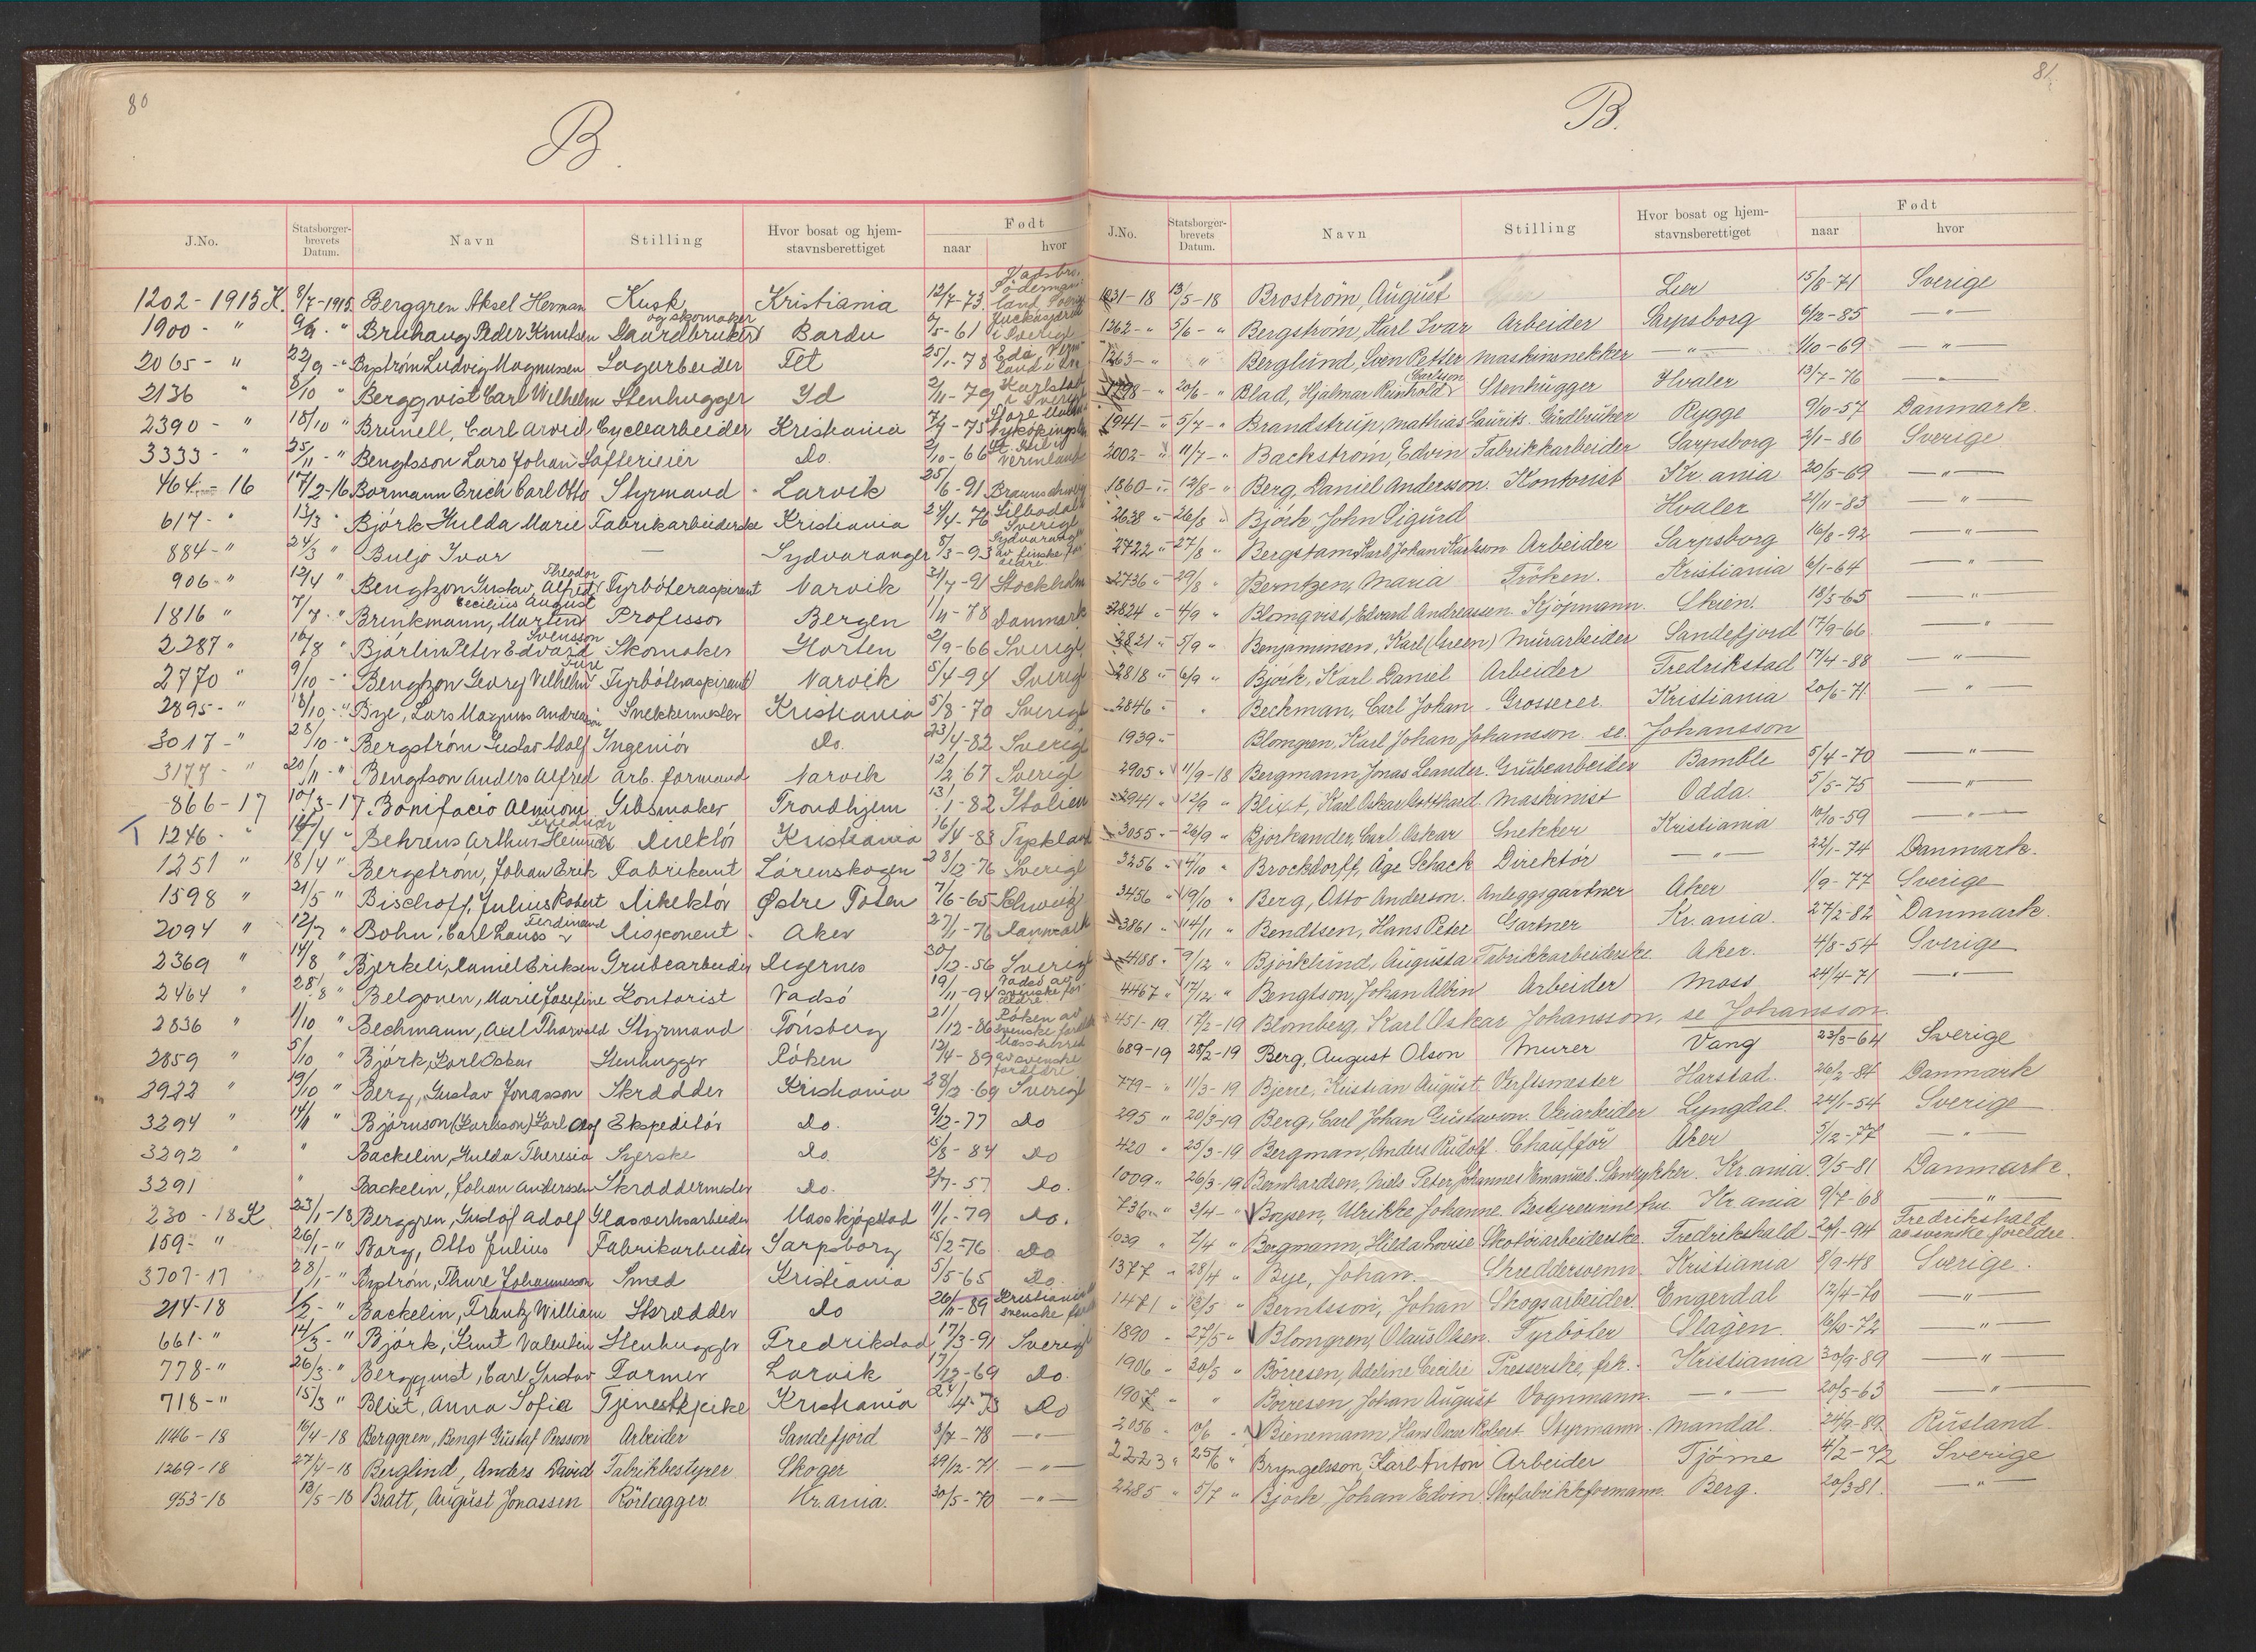 80
B.
J.No. Statsborger-brevets Datum. Navn Stilling Hvor bosat og hjem-stavnsberettiget Født naar hvor
1202 - 1915 K. 8/7-1915. Berggren Aksel Herman Kusk Kristiania 12/7-73. Södermanland Sverige
1900 - " " Bruhaug Peder Knutsen Gaardbruker og skomaker Bardu /5-61 i Sverige
2065 - " 22/9 - " Byström Ludvig Magnusen Sagarbeider Fet 25/1-78 Eda, Vermland i Sve
2136 " 8/10 " Bergqvist Carl Wilhelm Stenhugger Id 2/11-79 Karlstad i Sverige
2390 - " 18/10 " Brunell, Carl Arvid Cyclearbeider Kristiania 7/9-75
3333 - " 25/11 - " Bengtsson Lars Johan Do. 2/10-66 Vermland
464 - 16 17/2-16 Bormann Erich Carl Otto Styrmand Larvik 25/6-91 Braunschweig
617 - " 13/3 " Björk Hulda Marie Fabrikarbeiderske Kristiania 24/4-76 Silbodal Sverige
884 - " 24/3 " Buljo Ivar — Sydvaranger 8/3-93 Sydvaranger av finske forældre
906 - " 12/4 " Bengtzon Gustav Alfred Theodor Fyrböteraspirant Narvik 21/7-91 Stockholm
1816 " 7/7 - " Brinkmann, Martin Cecilius August Professor Bergen 1/11-78 Danmark
2287 " 16/8 " Bjärlin Peter Edvard Svensson Skomaker Horten 2/9-66 Sverige
2770 " 9/10 - " Bengtzon Georg Vilhelm Ture Fyrböteraspirant Narvik 5/4-94 Sverige
2895 - " 18/10 - " Bye, Lars Magnus Andreas Snekkermester Kristiania 5/8-70 Sverige
3017 - " 28/10 - " Bergström Gustav Adolf Ingeniör do. 23/4-82 Sverige
3177 - " 20/11 - " Bengtson Anders Alfred Arb. formand Narvik 12/2-67 Sverige
866 - 17 10/3-17. Bonifacio Almioni Gibsmaker Trondhjem 13/1-82 Italien
1246 - " /4 " Behrens Arthur Heinrich Friedrich Direktör Kristiania 16/4-83 Tyskland
1251 " 18/4 " Bergström, Johan Erik Fabrikant Lörenskogen 28/12-76 Sverige
1598 " 21/5 " Bischoff, Julius Robert Direktör Østre Toten 7/6-65 Schweitz
2094 " 12/7 " Bohn, Carl Lauss Ferdinand Disponent Aker 27/1-76 Danmark
2369 " 14/8 " Bjerkeli, Daniel Eriksen Grubearbeider Degernes 30/12-56 Sverige
2464 " 28/8 " Belgonen, Marie Josefine Kontorist Vadsö 19/11-94 Vadsö av svenske forældre
2836 " 1/10 " Bechmann, Axel Thorvald Styrmand Tönsberg 21/12-86 Röken av svenske forældre
2859 " 5/10 " Björk, Karl Oskar Stenhugger Röken 12/4-89 av svenske forældre
2922 " 19/10 " Berg, Gustav Jonasson Skrædder Kristiania 28/12-69 Sverige
3294 " 14/11 " Björnson (Karlsson) Karl Olof Ekspeditör do. 9/12-77 do
3292 " " Backelin, Hulda Theresia Syerske do. 15/8-84 do
3291 " Backelin, Johan Anderssen Skræddermester do. 2/7-57 do.
230 - 18 K. 23/1-18 Berggren, Gustaf Adolf Glasverksarbeider Moss kjöpstad 11/1-79 do.
159 - " 26/1 - " Borg, Otto Julius Fabrikarbeider Sarpsborg 15/2-76 do
3707-17 28/1 - " Byström, Thure Johannesson Smed Kristiania 5/5-65 do.
214-18 1/2 - " Backelin, Frantz William Skrædder do 26/11-89 Kristiania svenske foræld
661 - " 14/3 - " Björk, Knut Valentin Stenhugger Fredrikstad 17/3-91 Sverige
778 - " 26/3 - " Bergquist, Carl Gustav Former Larvik 17/12-69 do.
718 - " 15/3 " Blixt, Anna Sofia Tjenestepike Kristiania 24/4-73 do
1146-18 16/4-18 Berggren, Bengt Gustaf Persson Arbeider Sandefjord 3/7-78 — " —
1269-18 27/4-18 Berglind, Anders David Fabrikbestyrer Skoger 29/12-71 — " —
953-18 13/5-18 Bratt, August Jonassen Rörlægger Kr.ania. 30/5-70 — " —
81
B.
J.No. Statsborger-brevets Datum. Navn Stilling Hvor bosat og hjem-stavnsberettiget Født naar hvor
1031-18 13/5-18 Broström, August Lier 15/8-71 Sverige
1262 - " 5/6 - " Bergström, Karl Ivar Arbeider Sarpsborg 6/12-85 — " —
1263 - " " Berglund, Sven Petter maskinsnekker — " — 1/10-69 — " —
1798 - " 20/6 - " Blad, Hjalmar Reinhold Carlsson Stenhugger Hvaler 13/7-76 — " —
1941 - " 5/7 - " Brandstrup, Mathias Laurits. Gårdbruker Rygge 9/10-57 Danmark.
2002 - " 11/7 - " Backström, Edvin Fabrikkarbeider Sarpsborg 3/1-86 Sverige
1860 - " 12/8 - " Berg, Daniel Andersson. Kontorist Kr.ania 20/5-69 — " —
2638 " 26/8 " Björk, John Sigurd Hvaler 21/11-83 — " —
2722 " 27/8 " Bergstam Karl Johan Karlson Arbeider Sarpsborg 16/8-92 — " —
2736 " 29/8 " Berntzen, Maria Fröken. Kristiania 6/1-64 — " —
2824 " 4/9 " Blomqvist, Edvard Andreassen. Kjöpmann. Skien. 18/5-65 — " —
2821 " 5/9 " Benjaminsen, Karl (Green) Murarbeider Sandefjord 17/9-66 — " —
2818 " 6/9 " Björk, Karl Daniel Arbeider Fredrikstad 17/4-88 — " —
2846 " " Beckman, Carl Johan Grosserer Kristiania 20/6-71 — " —
1939 " Blomgren, Karl Johan Johansson se. Johansson
2905 " 11/9-18 Bergmann Jonas Leander. Grubearbeider Bamble 5/4-70 — " —
2941 " 12/9 " Blixt, Karl Oskar Gotthard. Maskinist Odda. 5/5-75 — " —
3055 " 26/9 " Bjorkander, Carl Oskar Snekker Kristiania 10/10-59 — " —
3256 " 4/10 " Brockdorff, Åge Schack Direktör — " — 22/1-74 Danmark.
3456 " 19/10 " Berg, Otto Anderson. Anleggsgartner Aker 1/9-77 Sverige
3861 " 14/11 " Bendtsen, Hans Peter Gartner Kr.ania. 27/2-82 Danmark.
4188 " 9/12 " Björklund, Augusta Fabrikkarbeiderske. Aker. 4/8-54 Sverige
4467 " 17/12 " Bengtson, Johan Albin Arbeider Moss 24/4-71 — " —
451-19 17/2-19 Blomberg, Karl Oskar Johansson, se Johansson.
689-19 28/2-19 Berg, August Olson Murer Vang 23/3-64 Sverige
779 - " 11/3-19 Bjerre, Kristian August Verftsmester Harstad. 26/2-84 Danmark
295 " 20/3-19 Berg, Carl Johan Gustavson. Veiarbeider Lyngdal. 24/1-54 Sverige
420 " 25/3-19 Bergman, Anders Rudolf. Chauffør Aker 5/12-77 — " —
1009 " 26/3-19 Bernhardsen, Niels Peter Johannes Emanuel. Kr.ania. 9/5-81 Danmark.
736 " 2/4 - " Boysen, Ulrikke Johanne. Bestyrerinne fru Kr.ania 9/7-68 — " —
1039 " 7/4 " Bergmann, Hilda Lovise Skotöiarbeiderske. Fredrikshald 20/1-94 Fredrikshald av svenske foreldre.
1377 " 28/4 " Bye, Johan. Skreddersvenn. Kristiania 8/9-48 Sverige.
1471 " 12/5 " Berntsson, Johan Skogsarbeider. Engerdal 12/4-70 — " —
1890 " 27/5 " Blomgren, Olaus Olsen. Fyrböter Slagen. 16/10-72 — " —
1906 " 30/5 " Börresen, Adeline Cecilie Presserske, frk. Kristiania 30/9-89 — " —
1907 " " Börresen, Johan August Vognmann. — " — 20/5-63 — " —
2056 " 10/6 " Bienemann, Hans Oscar Robert. Styrmann. Mandal. 24/9-89. Rusland.
2223 " 25/6 " Bryngelsson, Karl Anton Arbeider Tjöme 4/2-72 Sverige
2285 " 5/7 " Björk, Johan Edvin. Skofabrikkformann. Berg. 20/3-81. — " —